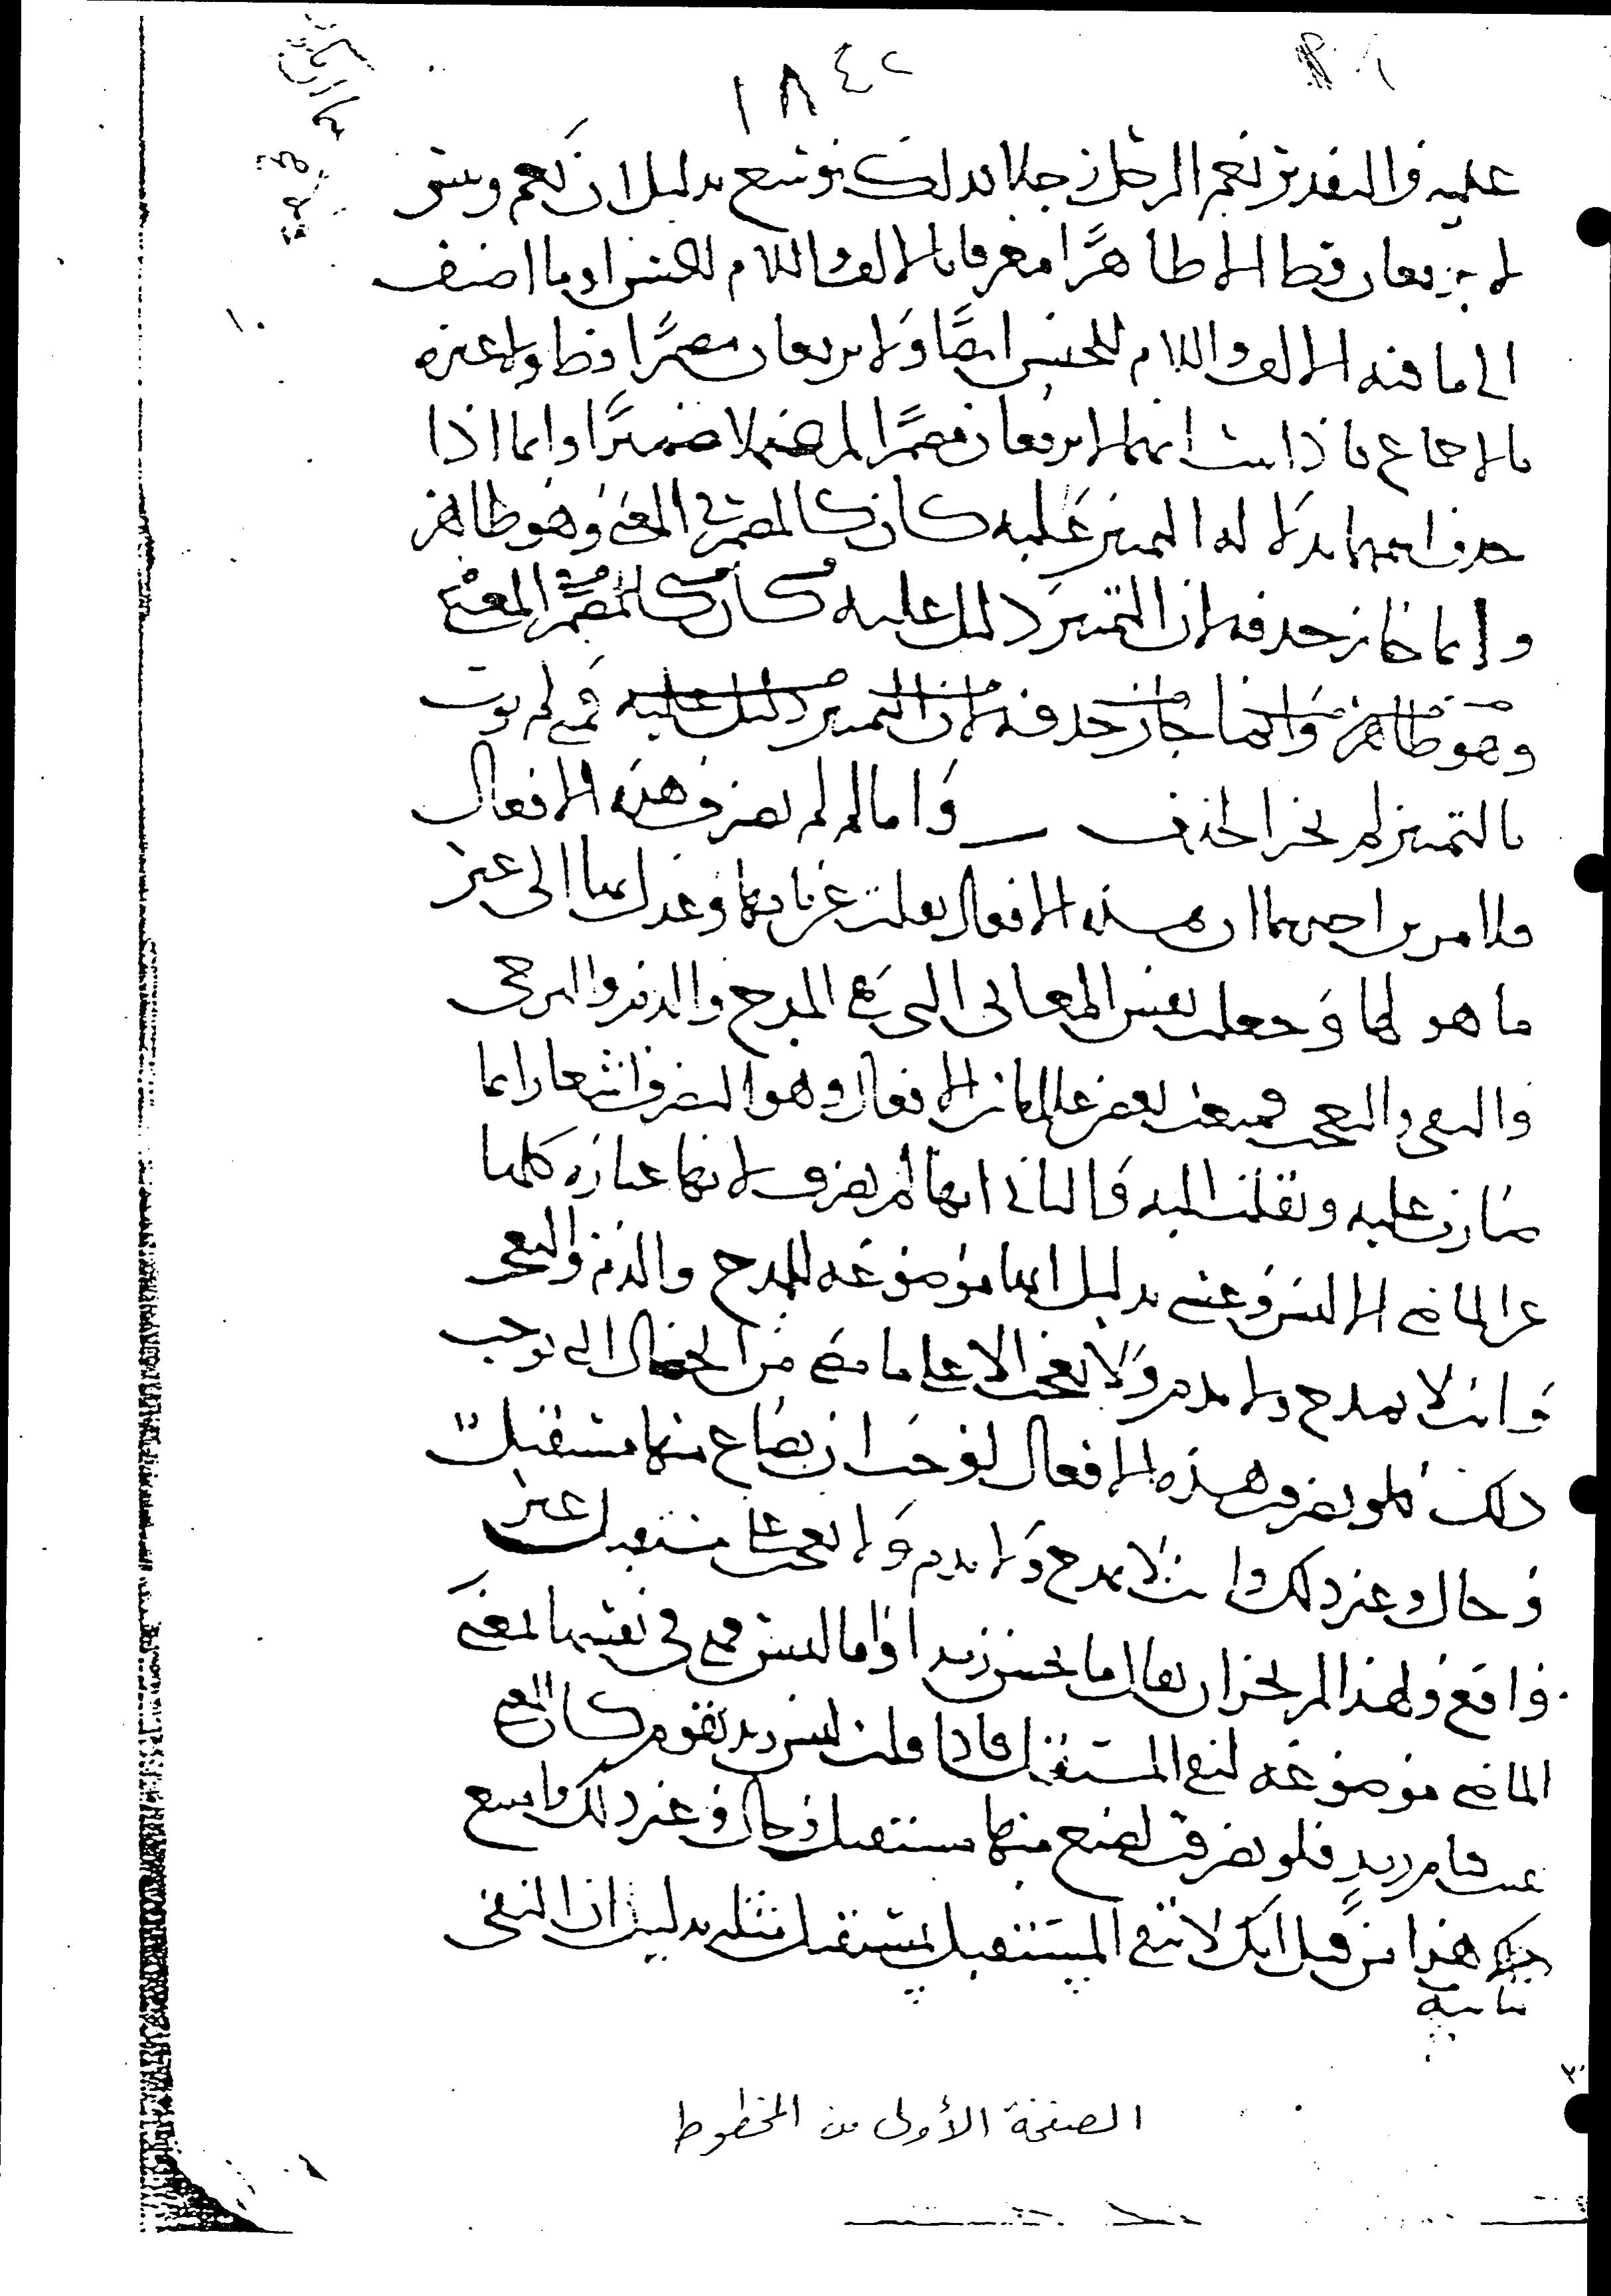 ١٨٤٢
عليه والتقدير نعم الرجل رجلا بذلك توسع بدليل ان نعم وبئس
لا يرفعان قط الا ظاهرًا معرفا بالالف واللام للجنس او ما اضيف
الى ما فيه الالف واللام للجنس ايضًا ولا يرفعان مضمرًا قط ولا غيره
بالاجماع فاذا ثبت انهما لا يرفعان مضمرًا لم يضمرا ضميرًا وانما اذا
حذف اسمهما بدلالة التمييز عليه كان كالمضمر في المعنى وهو ظاهر
وإنما جاز حذفه لان التمييز دليل عليه كان كالمضمر في المعنى
وهو ظاهر وانما جاز حذفه لان التمييز دليل عليه فمتى لم يوت
بالتمييز لم يجز الحذف واما لم لم تصرف هذه الافعال
فلامرين احدهما ان هذه الافعال نقلت عن بابها وعدل بها الى غير
ما هو لها وجعلت نفس المعاني التي هي المدح والذم والترجي
والنفي والتعجب فمنعت بعض علامات الافعال وهو التصرف اشعارا بما
صارت عليه ونقلت اليه والثاني انها لم تصرف لانها عبارة كلها
عن الماضي الا ليس وعسى بدليل انها موضوعه للمدح والذم والتعجب
وانت لا تمدح ولا تذم ولا تعجب الا على ما مضى من الخصال التي توجب
ذلك فلو تصرفت هذه الافعال لوجب ان يصاغ منها مستقبل
وحال وغير ذلك وانت لا تمدح ولا تذم ولا تعجب مستقبل غير
واقع ولهذا لم يجز ان يقال ما يحسن زيدا واما ليس فهي في نفسها لمعنى
الماضي موضوعه لنفي المستقبل فاذا قلت ليس زيد يقوم كان النفي
قيام زيد فلو تصرفت لصنع منها مستقبل وحال وغير ذلك وامتنع
هذا من قبل انك لا تنفي المستقبل بمستقبل مثله بدليل ان النفي
ثانية
الصفحة الأولى من المخطوط